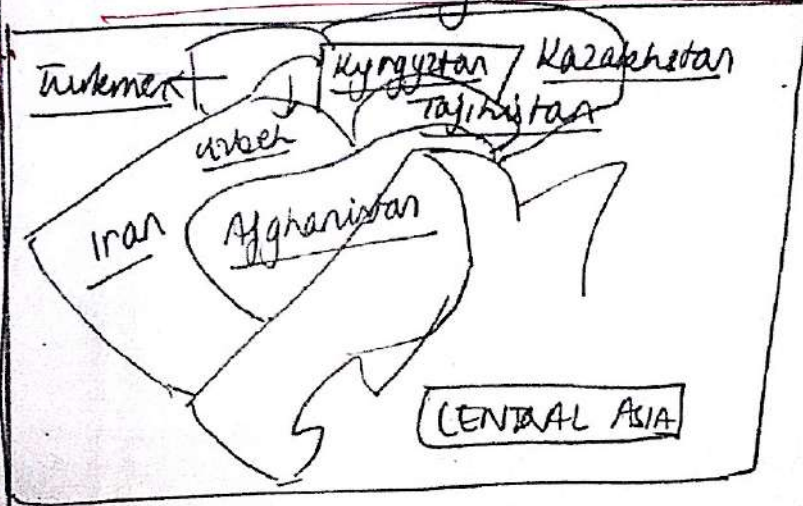 Turkmen
Kyrgyztan
Kazakhstan
Tajikistan
Uzbek
Iran
Afghanistan
CENTRAL ASIA